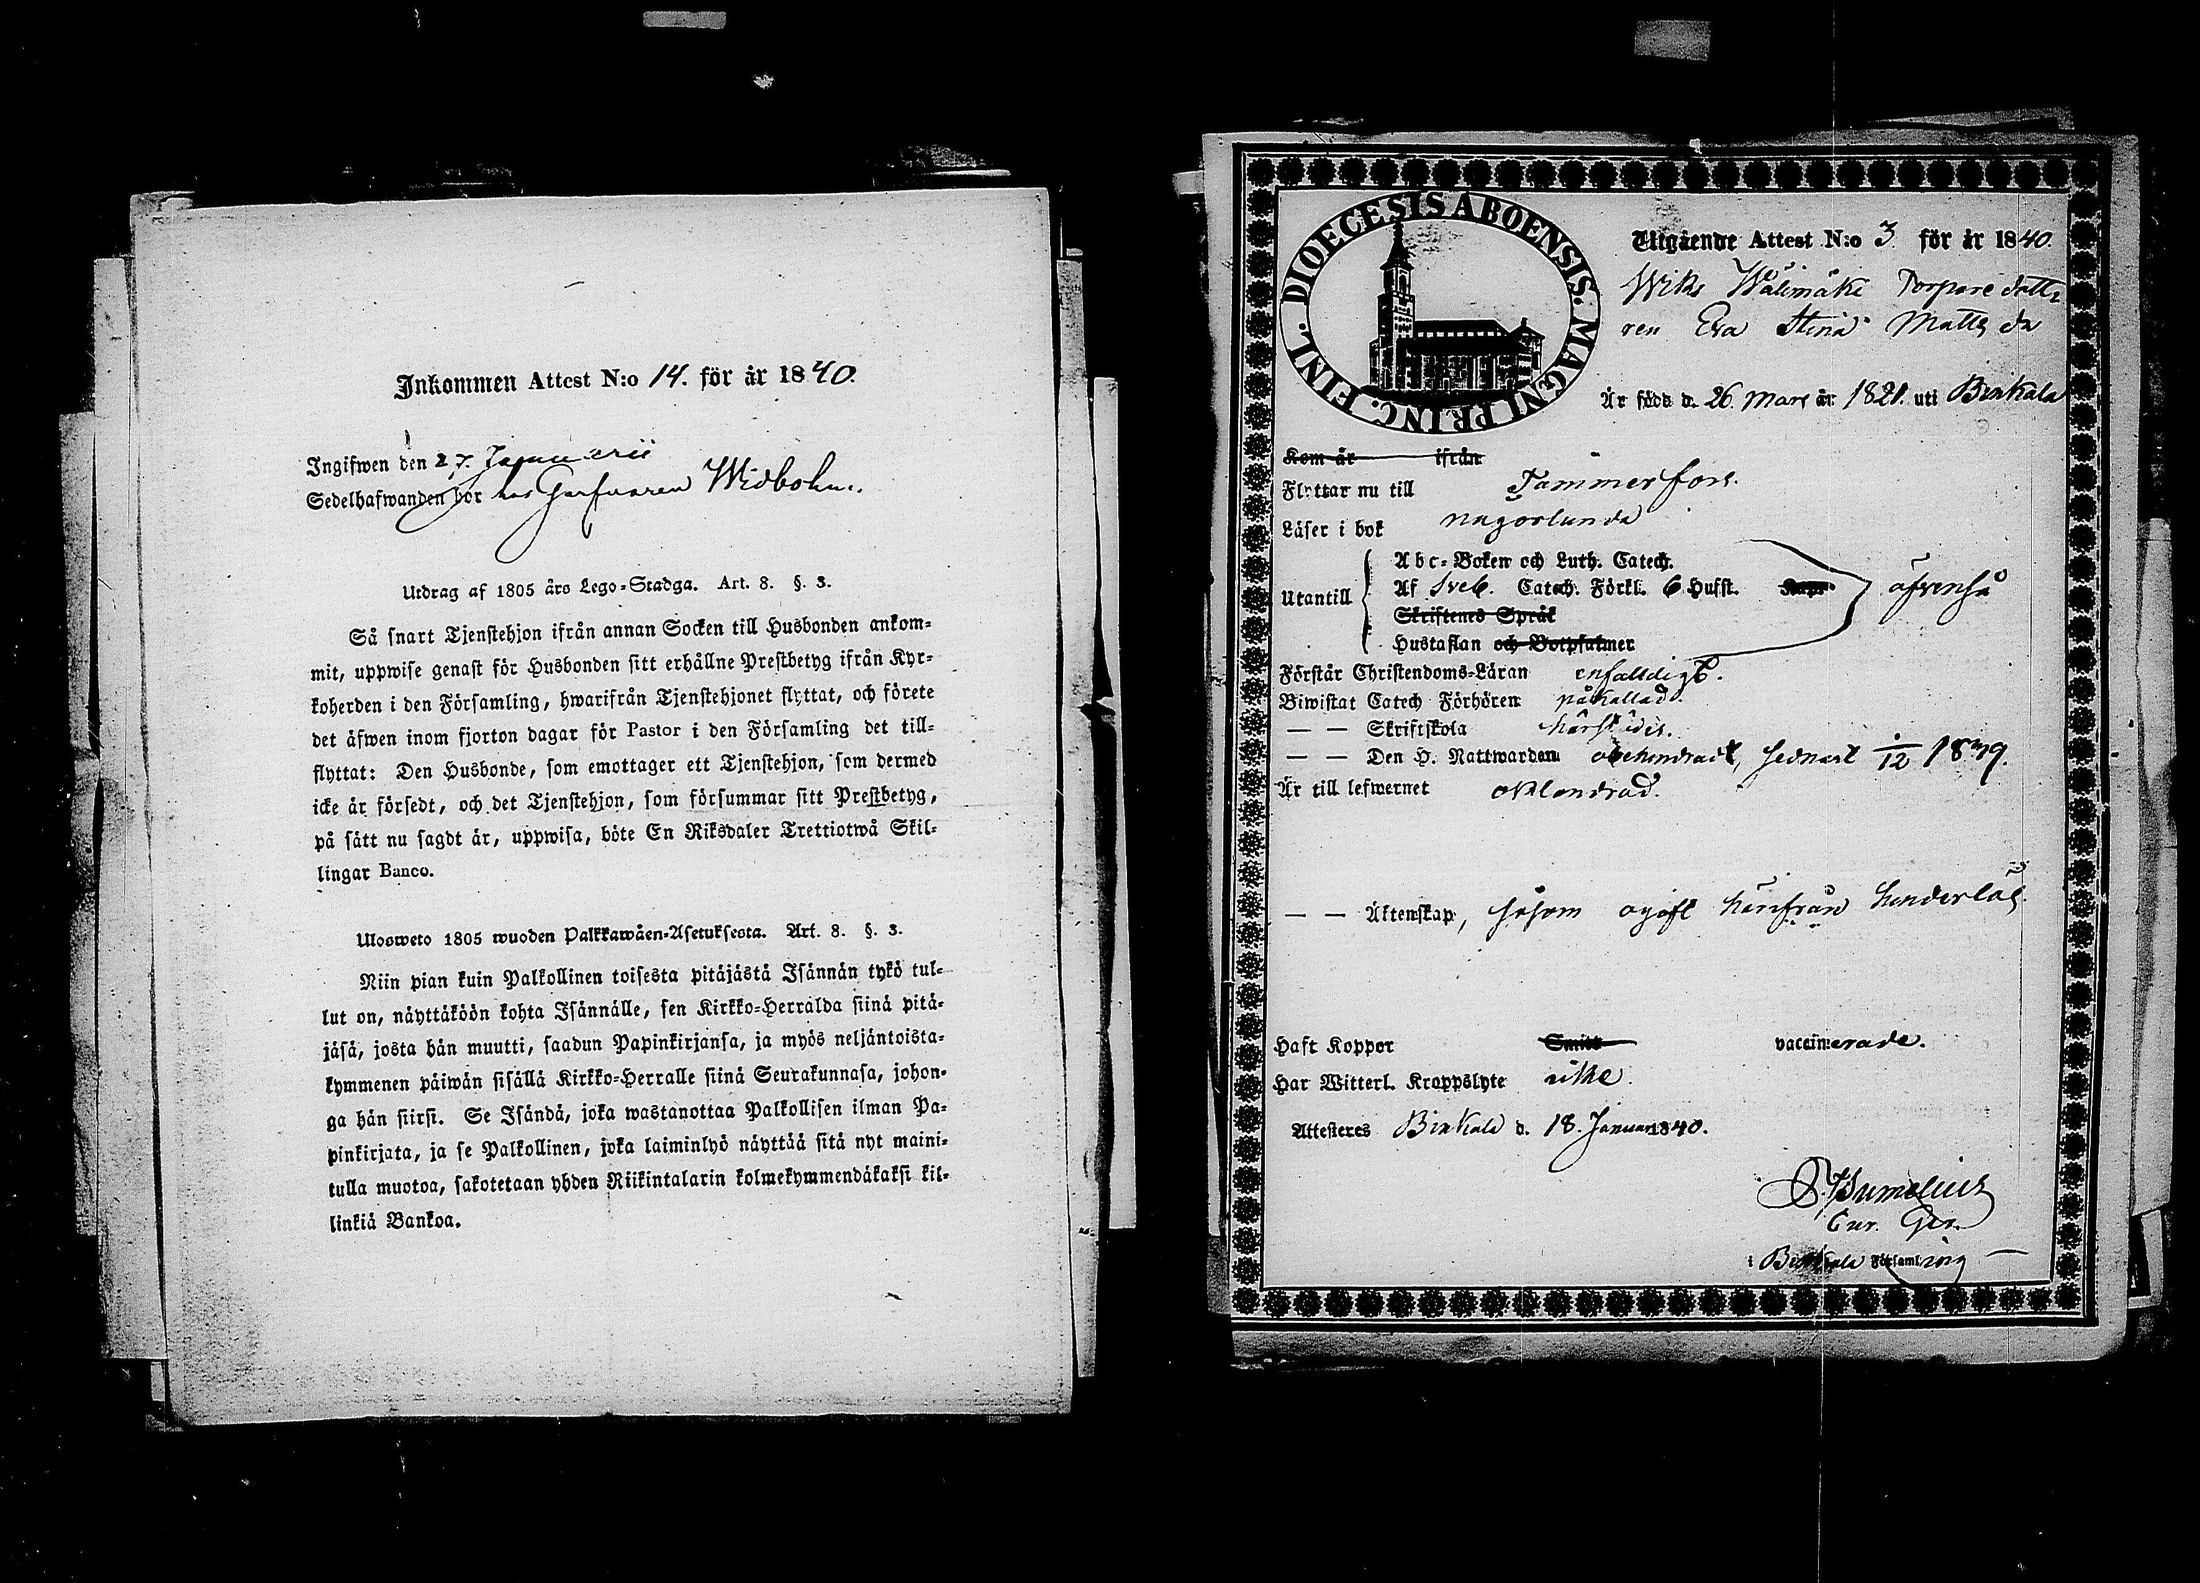 Inkommen Attest N:o 14. för år 1840.
Ingifwen den 27. Januarii
Sedelhafwanden bor hos Garfvaren Widbohm.
Utdrag af 1805 års Lego-Stadga. Art. 8. §. 3.
Så snart Tjenstehjon ifrån annan Socken till Husbonden ankom-
mit, uppwise genast för Husbonden sitt erhållne Prestbetyg ifrån Kyr-
koherden i den Församling, hwarifrån Tjenstehjonet flyttat, och förete
det äfwen inom fjorton dagar för Pastor i den Församling det till-
flyttat: Den Husbonde, som emottager ett Tjenstehjon, som dermed
icke är försedt, och det Tjenstehjon, som försummar sitt Prestbetyg,
på sätt nu sagdt är, uppwisa, böte En Riksdaler Trettiotwå Skil-
lingar Banco.
Ulosweto 1805 wuoden Palkkawäen-Asetuksesta. Art. 8. §. 3.
Niin pian kuin Palkollinen toisesta pitäjästä Isännän tykö tul-
lut on, näyttäköön kohta Isännälle, sen Kirkko-Herralda siinä pitä-
jäsä, josta hän muutti, saadun Papinkirjansa, ja myös neljäntoista-
kymmenen päiwän sisällä Kirkko-Herralle siinä Seurakunnasa, johon-
ga hän siirsi. Se Isändä, joka wastanottaa Palkollisen ilman Pa-
pinkirjata, ja se Palkollinen, joka laiminlyö näyttää sitä nyt maini-
tulla muotoa, sakotetaan yhden Riikintalarin kolmekymmendäkaksi kil-
linkiä Bankoa.
DIOECESIS ABOENSIS. MAGNI PRINC. FINL.
Utgående Attest N:o 3 för år 1840.
Wiks Wälimäki Torparedott
ren Eva Stina Matts dr
Är född d. 26. Mars år 1821. uti Birkala
Kom år ifrån
Flyttar nu till Tammerfors.
Läser i bok någorlunda
Abc-Boken och Luth. Catech.
Utantill Af Sveb. Catech. Förkl. 6 Hufst. äfvenså
Skriftenes Språk
Hustaflan och Botpsalmer
Förstår Christendoms-Läran enfalldigt.
Biwistat Catech Förhören påkallad.
— — Skriftskola härstädes.
— — Den H. Nattwarden obehindradt, sednast 1/12 1839.
Är till lefwernet oklandrad.
— — Äktenskap, såsom ogift härifrån hinderlös.
Haft Koppor Smitt vaccinerade.
Har Witterl. Kroppslyte icke.
Attesteres Birkala d. 18. Januari 1840.
Cur. Ger.
i Birkala Församling